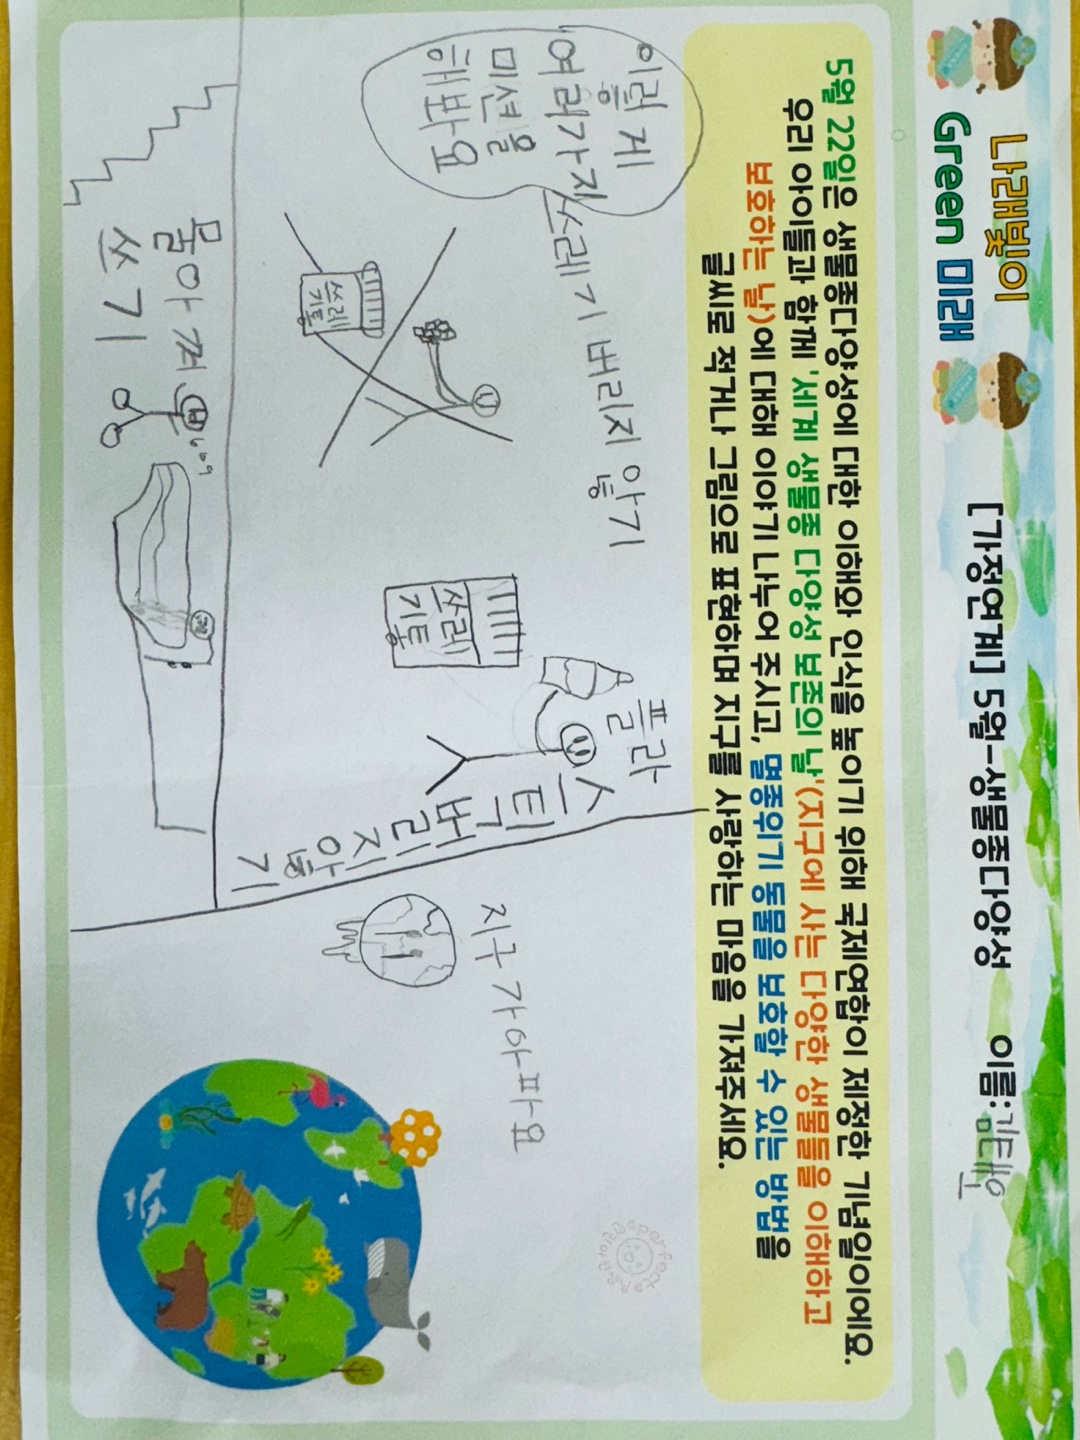 나래빛이
Green 미래
[가정연계] 5월-생물종다양성 이름:김태우
5월 22일은 생물종다양성에 대한 이해와 인식을 높이기 위해 국제연합이 제정한 기념일이에요.
우리 아이들과 함께 '세계 생물종 다양성 보존의 날'(지구에 사는 다양한 생물들을 이해하고
보호하는 날)에 대해 이야기 나누어 주시고, 멸종위기 동물을 보호할 수 있는 방법을
글씨로 적거나 그림으로 표현하며 지구를 사랑하는 마음을 가져주세요.
이렇게
여러가지
미션을
해봐요
쓰레기 버리지 않기
쓰레
기통
플라
스틱
버리지 않기
쓰레
기통
지구가 아파요
물 아껴
쓰기